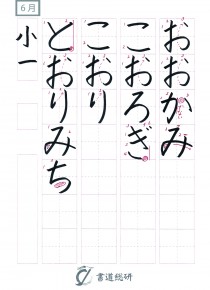 6月
おおかみ
こおろぎ
こおり
とおりみち
小一
書道総研